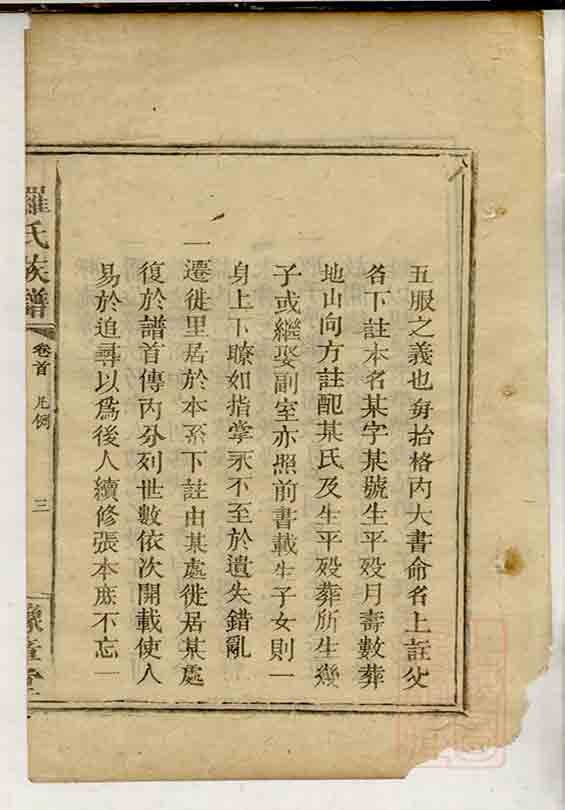 五服之義也每抬格內大書命名上註父
名下註本名某字某號生平歿月壽數葬
地山向方註配某氏及生平歿葬所生幾
子或繼娶副室亦照前書載生子女則一
身上下瞭如指掌永不至於遺失錯亂
一遷徙里居於本系下註由某處徙居某處
復於譜首傳內分列世數依次開載使人
易於追尋以爲後人續修張本庶不忘一
羅氏族譜
卷首 凡例
三
豫章堂